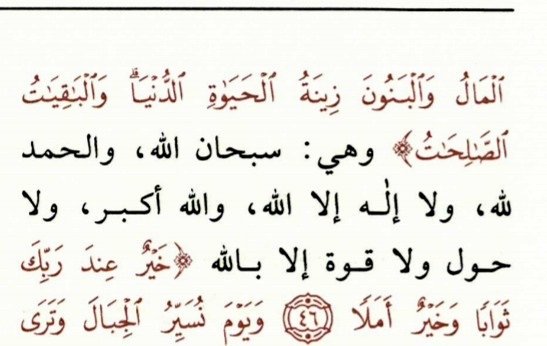 ٱلۡمَالُ وَٱلۡبَنُونَ زِينَةُ ٱلۡحَيَوٰةِ ٱلدُّنۡيَاۖ وَٱلۡبَٰقِيَٰتُ
ٱلصَّٰلِحَٰتُ﴾ وهي: سبحان الله، والحمد
لله، ولا إلٰه إلا الله، والله أكبر، ولا
حول ولا قوة إلا بالله ﴿خَيۡرٌ عِندَ رَبِّكَ
ثَوَابٗا وَخَيۡرٌ أَمَلٗا ٤٦ وَيَوۡمَ نُسَيِّرُ ٱلۡجِبَالَ وَتَرَى